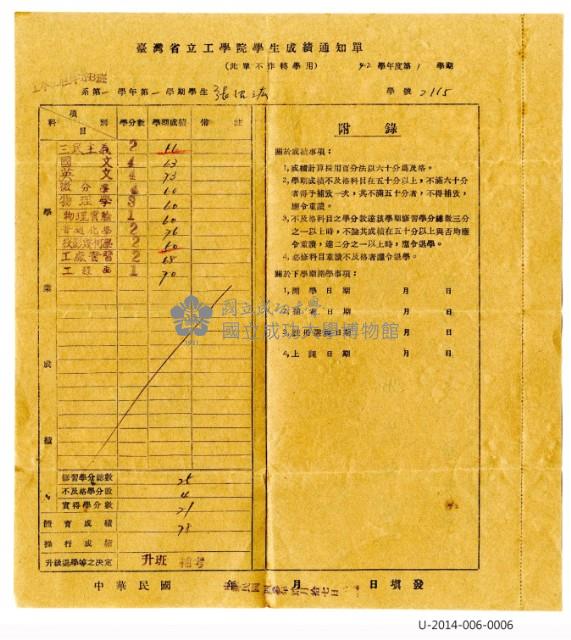 臺灣省立工學院學生成績通知單
(此單不作轉學用) 42 學年度第1 學期
系第一學年第一學期學生 張 學號 2115
科 項 目 別 學分數 學期成績 備 註
三民主義 2
國 文 4 63
英 文 4 73
微 分 學 4 60
物 理 學 3 60
物理實驗 1 60
普通化學 2 76
投影幾何學 2
工廠實習 2 68
工 程 畫 1 70
學
業
成
績
修習學分總數 25
不及格學分數 4
實得學分數 21
體育成績 78
操行成績
升級退學等之決定 升班 補考
附 錄
關於成績事項:
1,成績計算採用百分法以六十分為及格。
2,學期成績不及格科目在五十分以上,不滿六十分
者得予補放一次,其不滿五十分者,不得補放,
應令重讀。
3,不及格科目之學分數達該學期修習學分總數三分
之一以上時,不論其成績在五十分以與否均應
令重讀,達二分之一以上時,應令退學。
4,必修科目重讀不及格者應令退學。
關於下學期開學事項:
1,開 學 日 期 月 日
2,補 考 日 期 月 日
3,註冊選課日期 月 日
4,上 課 日 期 月 日
國立成功大學
國立成功大學博物館
1931
中 華 民 國 年 月 日 填 發
U-2014-006-0006